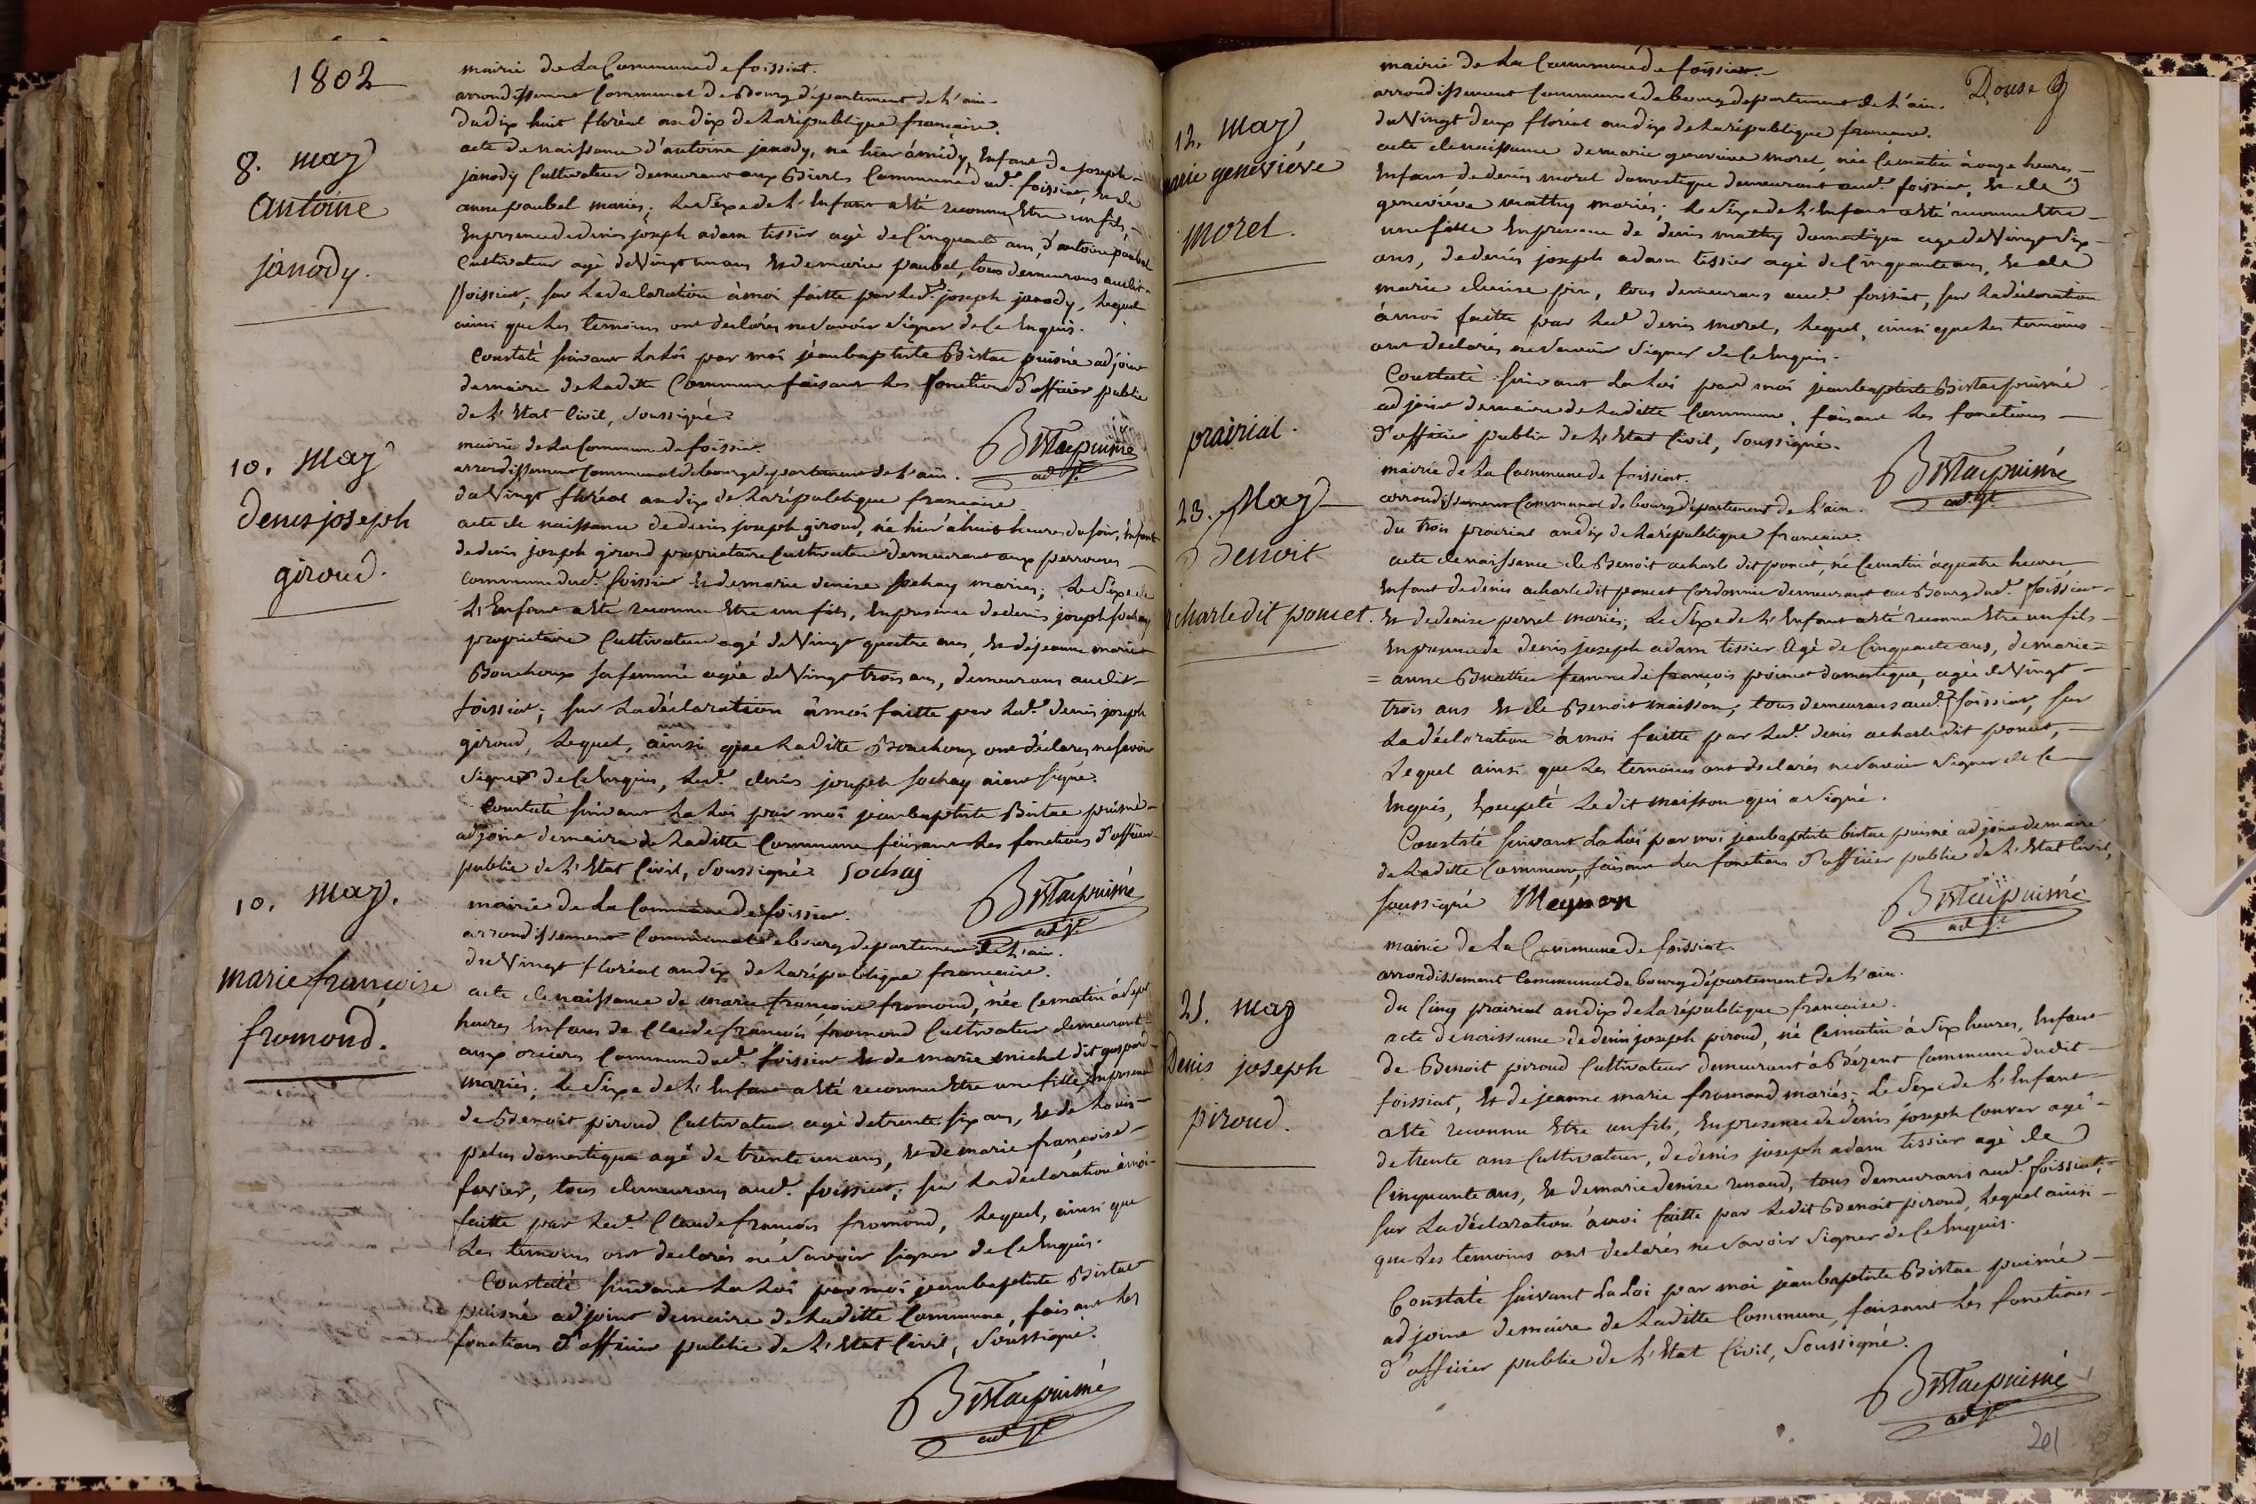 1802
mairie de la Commune de foissiat.
arrondissement Communal de Bourg département de l'ain.
du dix huit floréal an dix de la république francaise.
8. may
antoine
janody.
acte de naissance d'antoine janody, né hier à midy, Enfant de joseph
janody Cultivateur demeurant aux Commune dud. foissiat, et de
anne paubel mariés; le Sexe de l'Enfant a Eté reconnu Etre un fils,
En presence de denis joseph adam tissier agé de Cinquante ans, d'antoine paubel
Cultivateur agé de Vingt un ans Et de marie paubel, tous demeurans audit
foissiat; sur la declaration à moi faitte par led. joseph janody, lequel
ainsi que les temoins ont declarés ne Savoir Signer de Ce Enquis.
Constaté suivant la loi par moi jean baptiste Bistac puisné adjoint
de maire de laditte Commune faisant les fonctions d'officier public
de l'Etat Civil, Soussigné
Bistac puisné
adjt.
10. may
denis joseph
giroud.
mairie de la Commune de foissiat.
arrondissement Communal de bourg departement de l'ain.
du Vingt floréal an dix de la république francaise
acte de naissance de denis joseph giroud, né hier à huit heures du soir, Enfant
de denis joseph giroud proprietaire Cultivateur demeurant aux
Commune dud. foissiat Et de marie denise sochay mariés; le Sexe de
l'Enfant a Eté reconnu Etre un fils, En presence de denis joseph sochay
proprietaire Cultivateur agé de Vingt quatre ans, Et de jeanne marie
Bouchoux sa femme agée de Vingt trois ans, demeurans audit
foissiat; sur la déclaration à moi faitte par led. denis joseph
giroud, lequel, ainsi que laditte Bouchoux ont déclarés ne savoir
Signer de Ce Enquis, led. denis joseph sochay aiant signé.
Constaté suivant la loi par moi jean baptiste Bistac puisné
adjoint de maire de laditte Commune faisant les fonctions d'officier
public de l'Etat Civil, Soussigné Sochaj
Bistac puisné
adjt.
10. may.
marie françoise
fromond.
mairie de la Commune de foissiat.
arrondissement Communal de bourg departement de l'ain.
du Vingt floréal an dix de la république francaise.
acte de naissance de marie françoise fromond, née Ce matin à Sept
heures Enfant de Claude francois fromond Cultivateur demeurant
aux Commune dud. foissiat Et de marie michel dit
mariés; le Sexe de l'Enfant a Eté reconnu Etre une fille, En presence
de Benoit piroud Cultivateur agé de trente six ans, Et de Louis
domestique agé de trente un ans, Et de marie françoise
favier, tous demeurans aud. foissiat; sur la déclaration à moi
faitte par led. Claude francois fromond, lequel, ainsi que
les temoins ont declarés ne Savoir signer de Ce Enquis.
Constaté suivant la loi par moi jean baptiste Bistac
puisné adjoint de maire de laditte Commune, faisant les
fonctions d'officier public de l'Etat Civil, Soussigné.
Bistac puisné
adjt.
Douse
12. may
marie geneviéve
morel.
mairie de la Commune de foissiat.
arrondissement Communal de bourg departement de l'ain.
du Vingt deux floréal an dix de la république francaise.
acte de naissance de marie genevieve morel, née Ce matin à onze heures
Enfant de denis morel domestique demeurant aud. foissiat, Et de
geneviéve mathy mariés; le Sexe de l'Enfant a Eté reconnu Etre
une fille En presence de denis mathy domestique agé de Vingt Six
ans, de denis joseph adam tissier agé de Cinquante ans, Et de
marie denise pin, tous demeurans aud. foissiat, sur la déclaration
à moi faitte par led. denis morel, lequel, ainsi que les temoins
ont declarés ne Savoir Signer de Ce Enquis.
Constaté suivant la loi par moi jean baptiste Bistac puisné
adjoint de maire de laditte Commune, faisant les fonctions
d'officier public de l'Etat Civil, Soussigné.
Bistac puisné
adjt.
prairial.
23. May
Benoit
acharle dit poncet.
mairie de la Commune de foissiat.
arrondissement Communal de bourg département de l'ain.
du trois prairial an dix de la république francaise.
acte de naissance de Benoit acharle dit poncet, né Ce matin à quatre heures
Enfant de denis acharle dit poncet Cordonnier demeurant au Bourg dud. foissiat
Et de denise perret mariés; le Sexe de l'Enfant a Eté reconnu Etre un fils
En presence de denis joseph adam tissier agé de Cinquante ans, de marie=
= anne femme de françois domestique, agée de Vingt
trois ans Et de Benoit maisson, tous demeurans aud. foissiat, sur
la déclaration à moi faitte par led. denis acharle dit poncet,
lequel ainsi que les temoins ont declarés ne Savoir Signer de Ce
Enquis, Excepté ledit maisson qui a Signé.
Constaté suivant la loi par moi jean baptiste bistac puisné adjoint de maire
de laditte Commune, faisant les fonctions d'officier public de l'Etat Civil,
soussigné
Bistac puisné
adjt.
25. may
Denis joseph
piroud.
mairie de la Commune de foissiat.
arrondissement Communal de bourg département de l'ain.
du Cinq prairial an dix de la république francaise.
acte de naissance de denis joseph piroud, né Ce matin à Six heures, Enfant
de Benoit piroud Cultivateur demeurant à Bézent Commune dudit
foissiat, Et de jeanne marie fromond mariés; le Sexe de l'Enfant
a Eté reconnu Etre un fils, En presence de denis joseph Couvar agé
de trente ans Cultivateur, de denis joseph adam tissier agé de
Cinquante ans, Et de marie denise renaud, tous demeurans aud. foissiat;
sur la déclaration à moi faitte par ledit Benoit piroud, lequel ainsi
que les temoins ont declarés ne Savoir Signer de Ce Enquis.
Constaté suivant la loi par moi jean baptiste Bistac puisné
adjoint de maire de laditte Commune, faisant les fonctions
d'officier public de l'Etat Civil, Soussigné.
Bistac puisné
adjt.
201